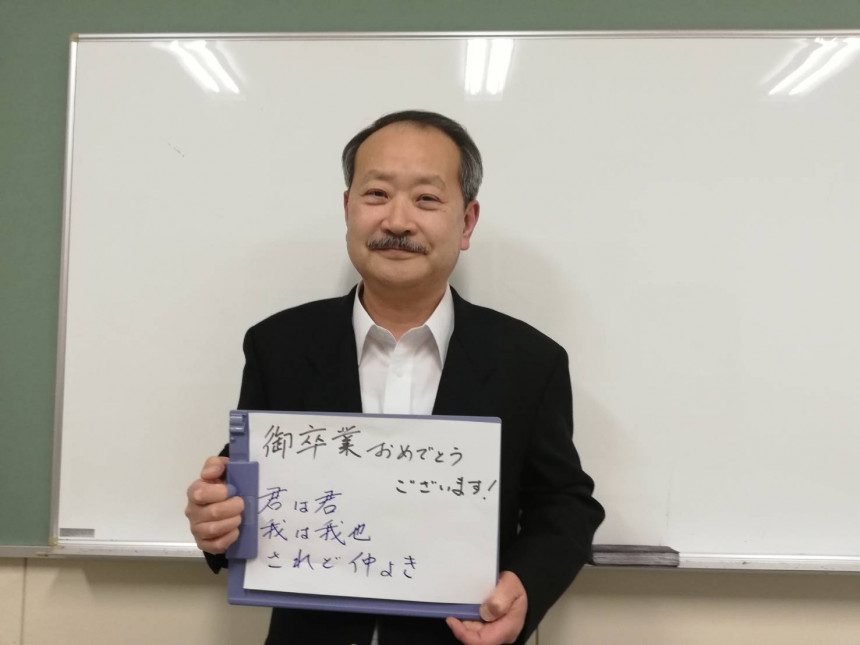 御卒業おめでとう
ございます!
君は君
我は我也
されど仲よき